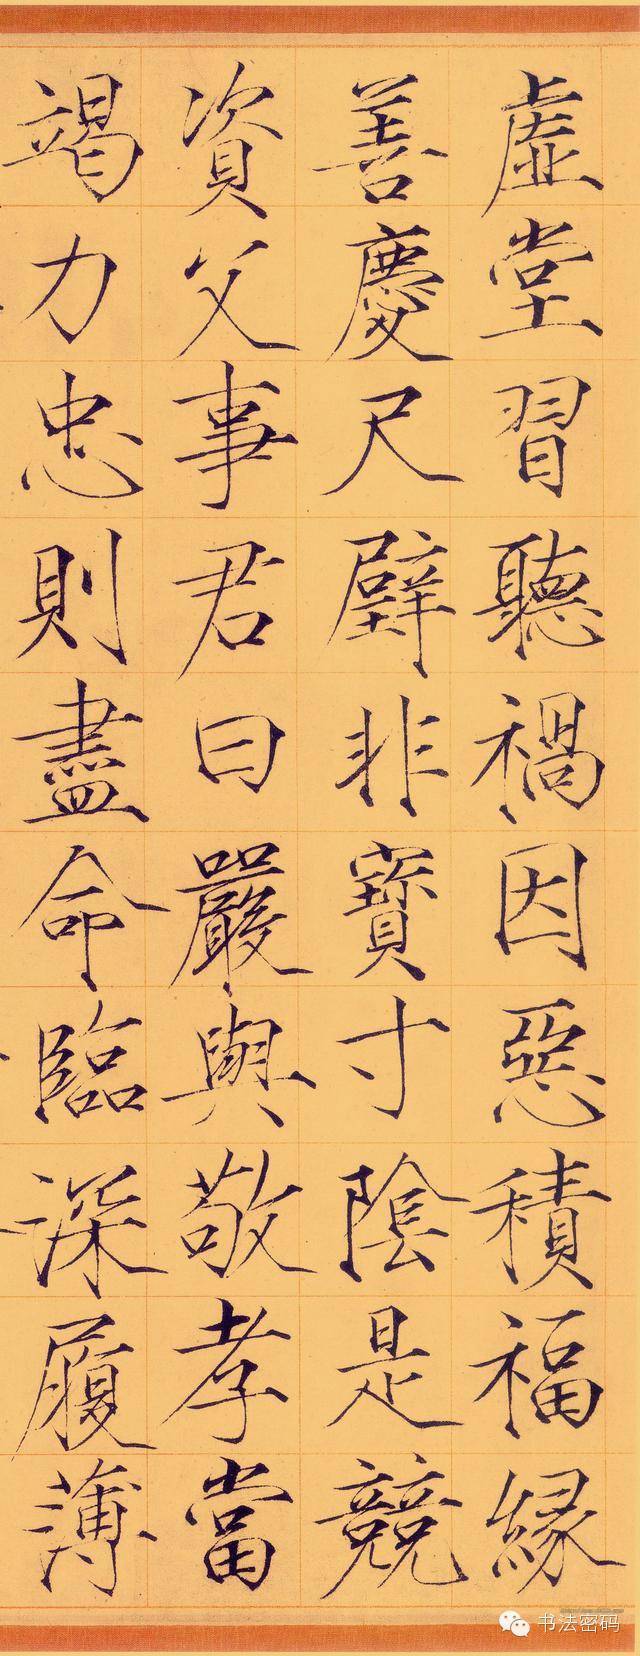 虛堂習聽禍因惡積福緣
善慶尺璧非寶寸陰是競
資父事君曰嚴與敬孝當
竭力忠則盡命臨深履薄
书法密码